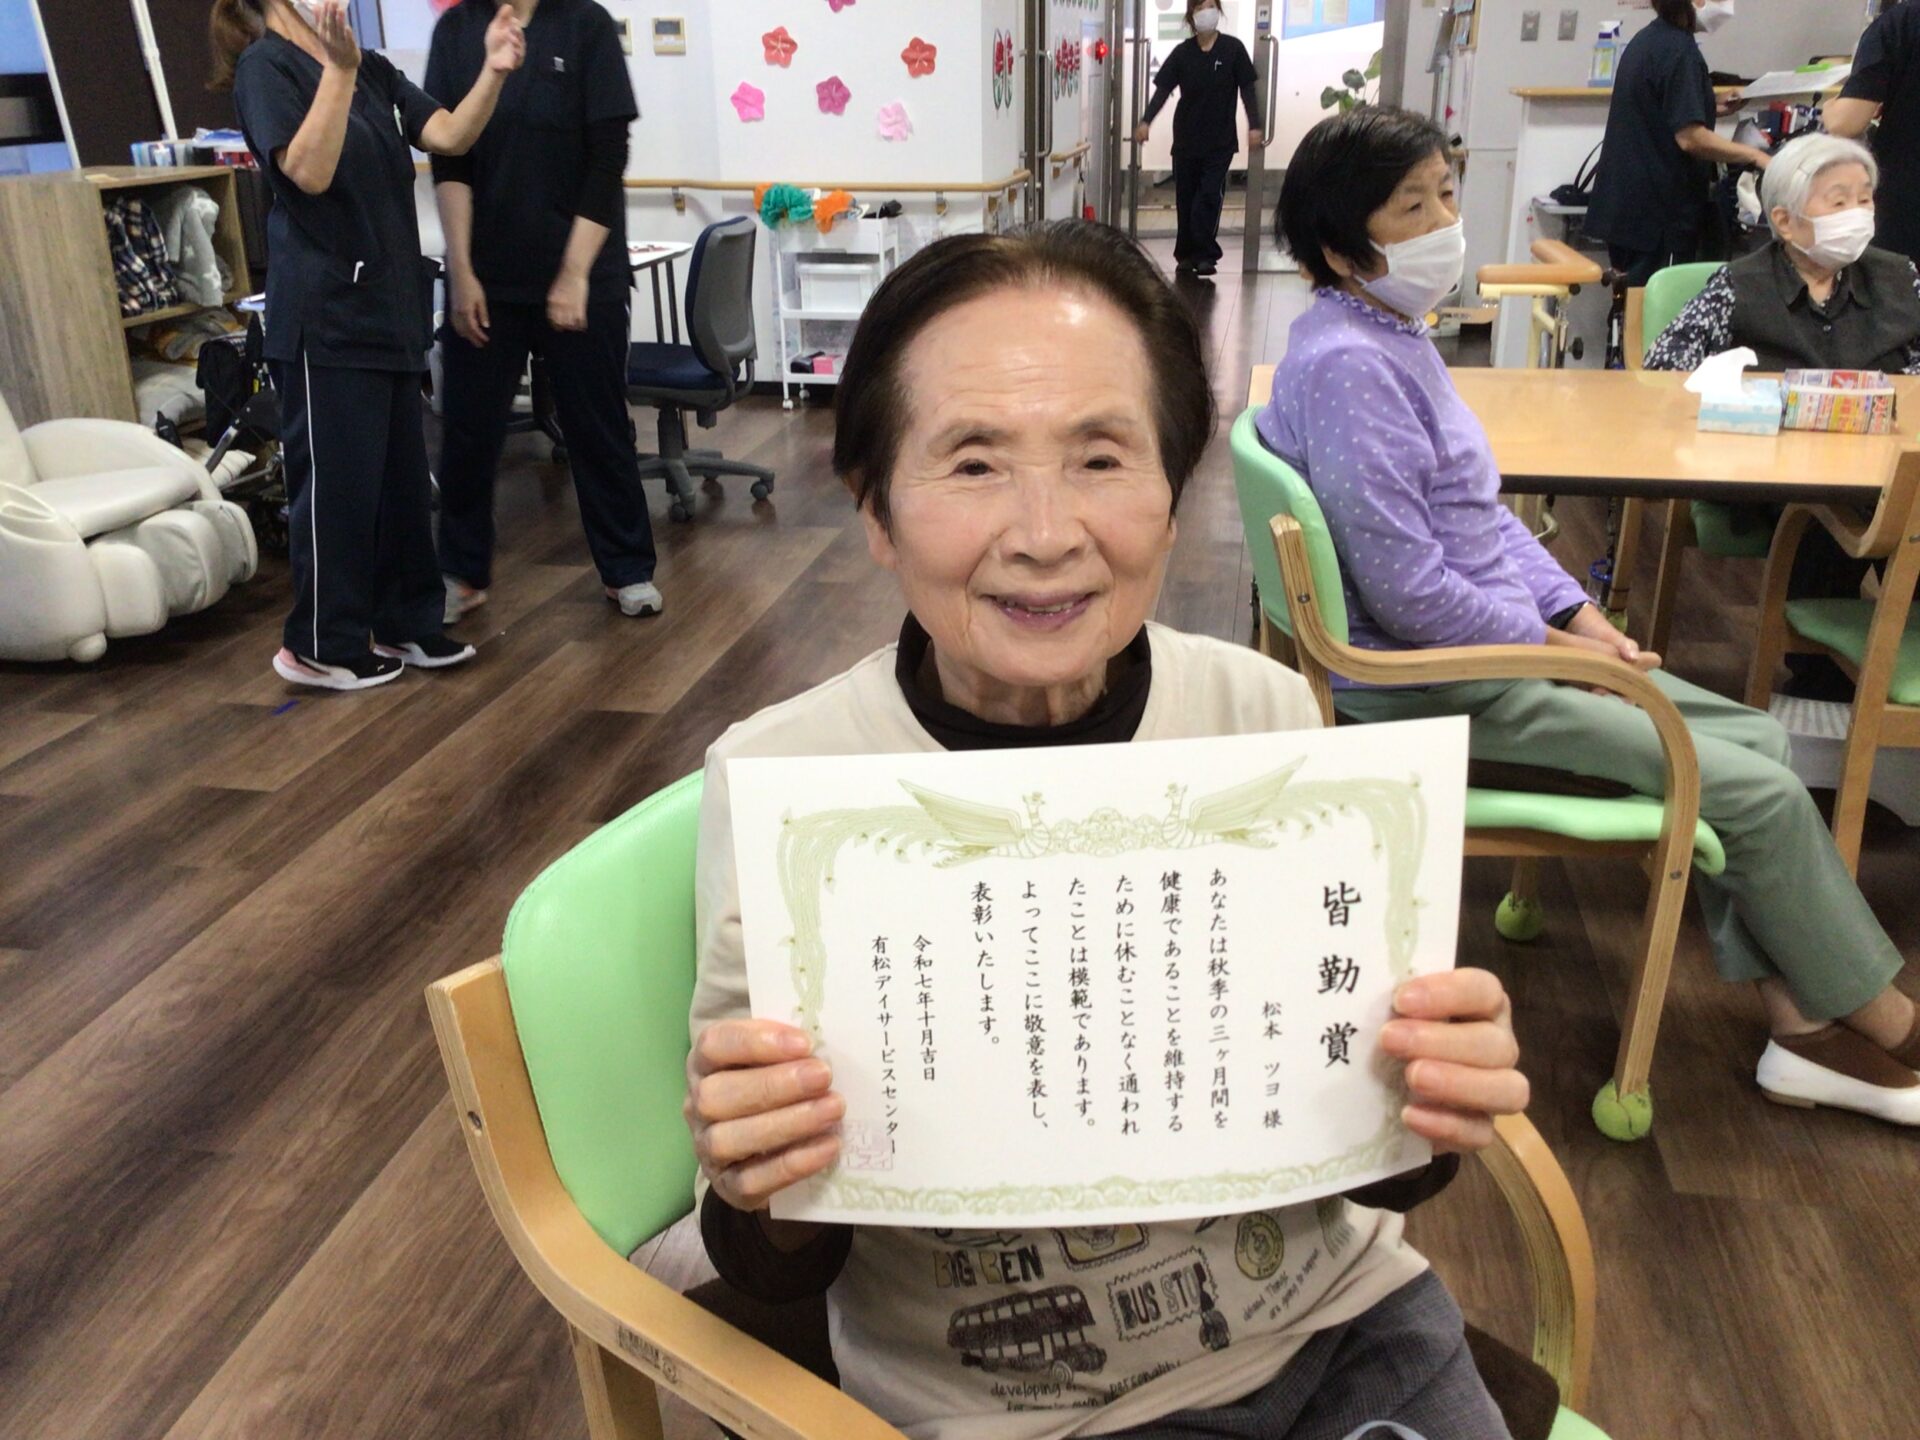 皆勤賞
松本 ツヨ 様
あなたは秋季の三ヶ月間を
健康であることを維持する
ために休むことなく通われ
たことは模範であります。
よってここに敬意を表し、
表彰いたします。
令和七年十月吉日
有松デイサービスセンター
BIG BEN
BUS STOP
developing
personality